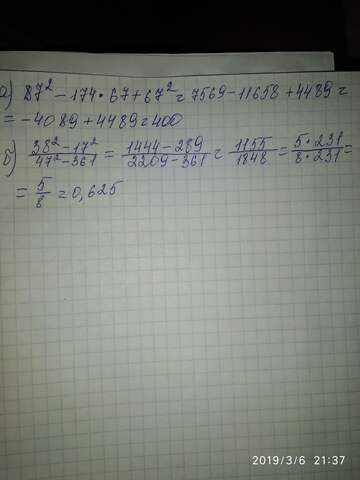 а) 87² − 174 · 67 + 67² = 7569 − 11658 + 4489 =
= −4089 + 4489 = 400
б) (38² − 17²)/(47² − 361) = (1444 − 289)/(2209 − 361) = 1155/1848 = (5 · 231)/(8 · 231) =
= 5/8 = 0,625
2019/3/6 21:37